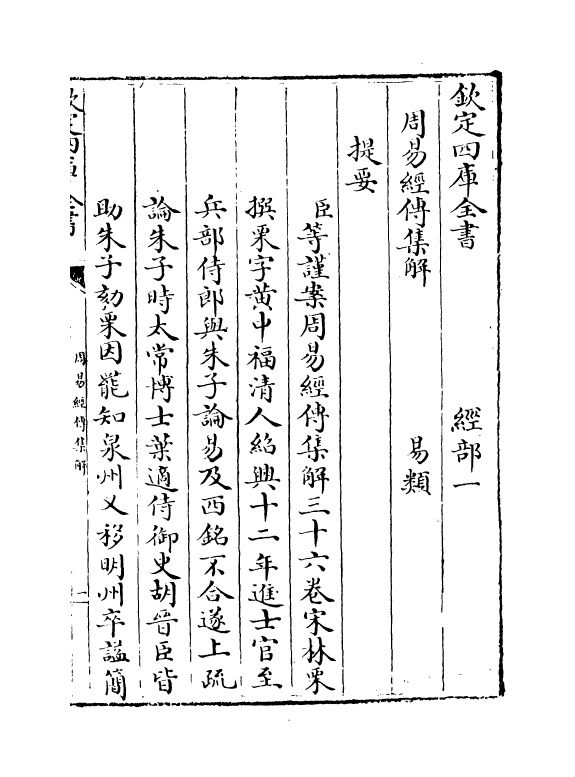 欽定四庫全書　經部一
周易經傳集解　易類
提要
臣等謹案周易經傳集解三十六卷宋林栗
撰栗字黄中福清人紹興十二年進士官至
兵部侍郎與朱子論易及西銘不合遂上疏
論朱子時太常博士葉適侍御史胡晉臣皆
助朱子劾栗因罷知泉州又移明州卒謚簡
欽定四庫全書
周易經傳集解
一